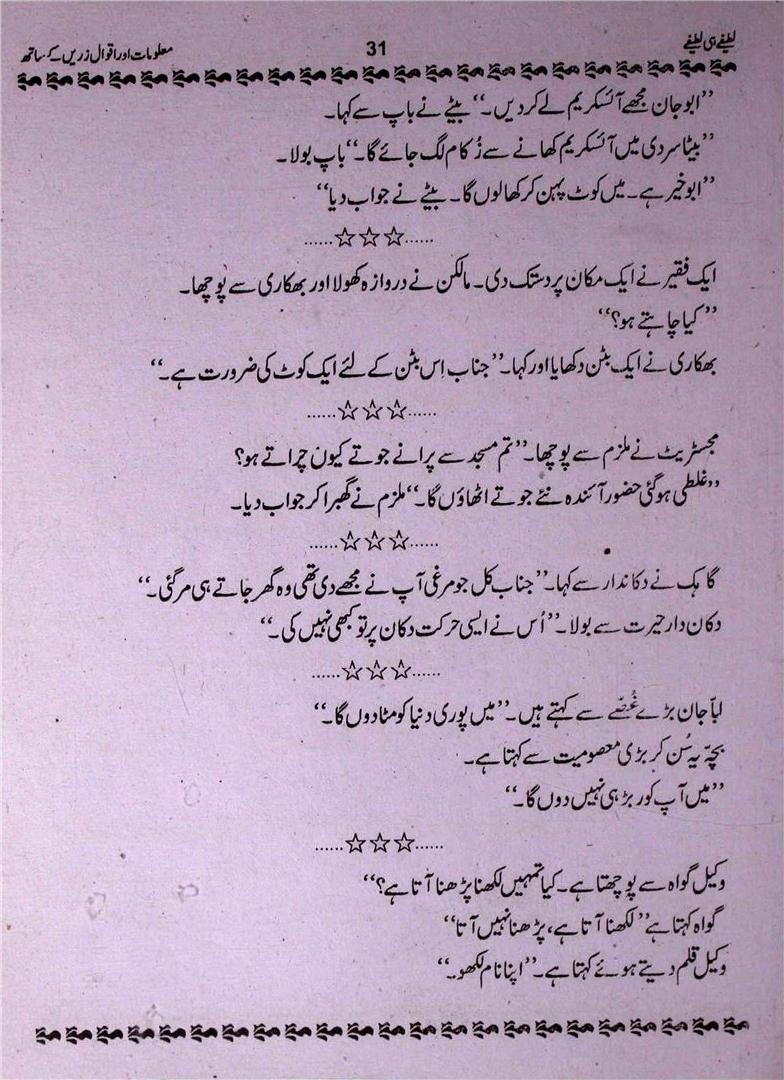 لطیفے ہی لطیفے 31 معلومات اور اقوال زریں کے ساتھ
’’ابو جان مجھے آئسکریم لے کر دیں۔‘‘ بیٹے نے باپ سے کہا۔
’’بیٹا سردی میں آئسکریم کھانے سے زُکام لگ جائے گا۔‘‘ باپ بولا۔
’’ابو خیر ہے۔ میں کوٹ پہن کر کھا لوں گا۔ بیٹے نے جواب دیا‘‘
......☆☆☆......
ایک فقیر نے ایک مکان پر دستک دی۔ مالکن نے دروازہ کھولا اور بھکاری سے پوچھا۔
’’ کیا چاہتے ہو؟‘‘
بھکاری نے ایک بٹن دکھایا اور کہا۔’’ جناب اِس بٹن کے لئے ایک کوٹ کی ضرورت ہے۔‘‘
......☆☆☆......
مجسٹریٹ نے ملزم سے پوچھا۔’’ تم مسجد سے پرانے جوتے کیوں چراتے ہو؟
’’غلطی ہو گئی حضور آئندہ نئے جوتے اٹھاؤں گا۔‘‘ ملزم نے گھبرا کر جواب دیا۔
......☆☆☆......
گاہک نے دکاندار سے کہا۔’’ جناب کل جو مرغی آپ نے مجھے دی تھی وہ گھر جاتے ہی مر گئی۔‘‘
دکان دار حیرت سے بولا۔’’ اُس نے ایسی حرکت دکان پر تو کبھی نہیں کی۔‘‘
......☆☆☆......
ابّا جان بڑے غُصّے سے کہتے ہیں۔’’ میں پوری دنیا کو مٹا دوں گا۔‘‘
بچّہ یہ سُن کر بڑی معصومیت سے کہتا ہے۔
’’میں آپ کو ربڑ ہی نہیں دوں گا۔‘‘
......☆☆☆......
وکیل گواہ سے پوچھتا ہے۔ کیا تمہیں لکھنا پڑھنا آتا ہے؟‘‘
گواہ کہتا ہے’’ لکھنا آتا ہے، پڑھنا نہیں آتا‘‘
وکیل قلم دیتے ہوئے کہتا ہے۔’’ اپنا نام لکھو۔‘‘